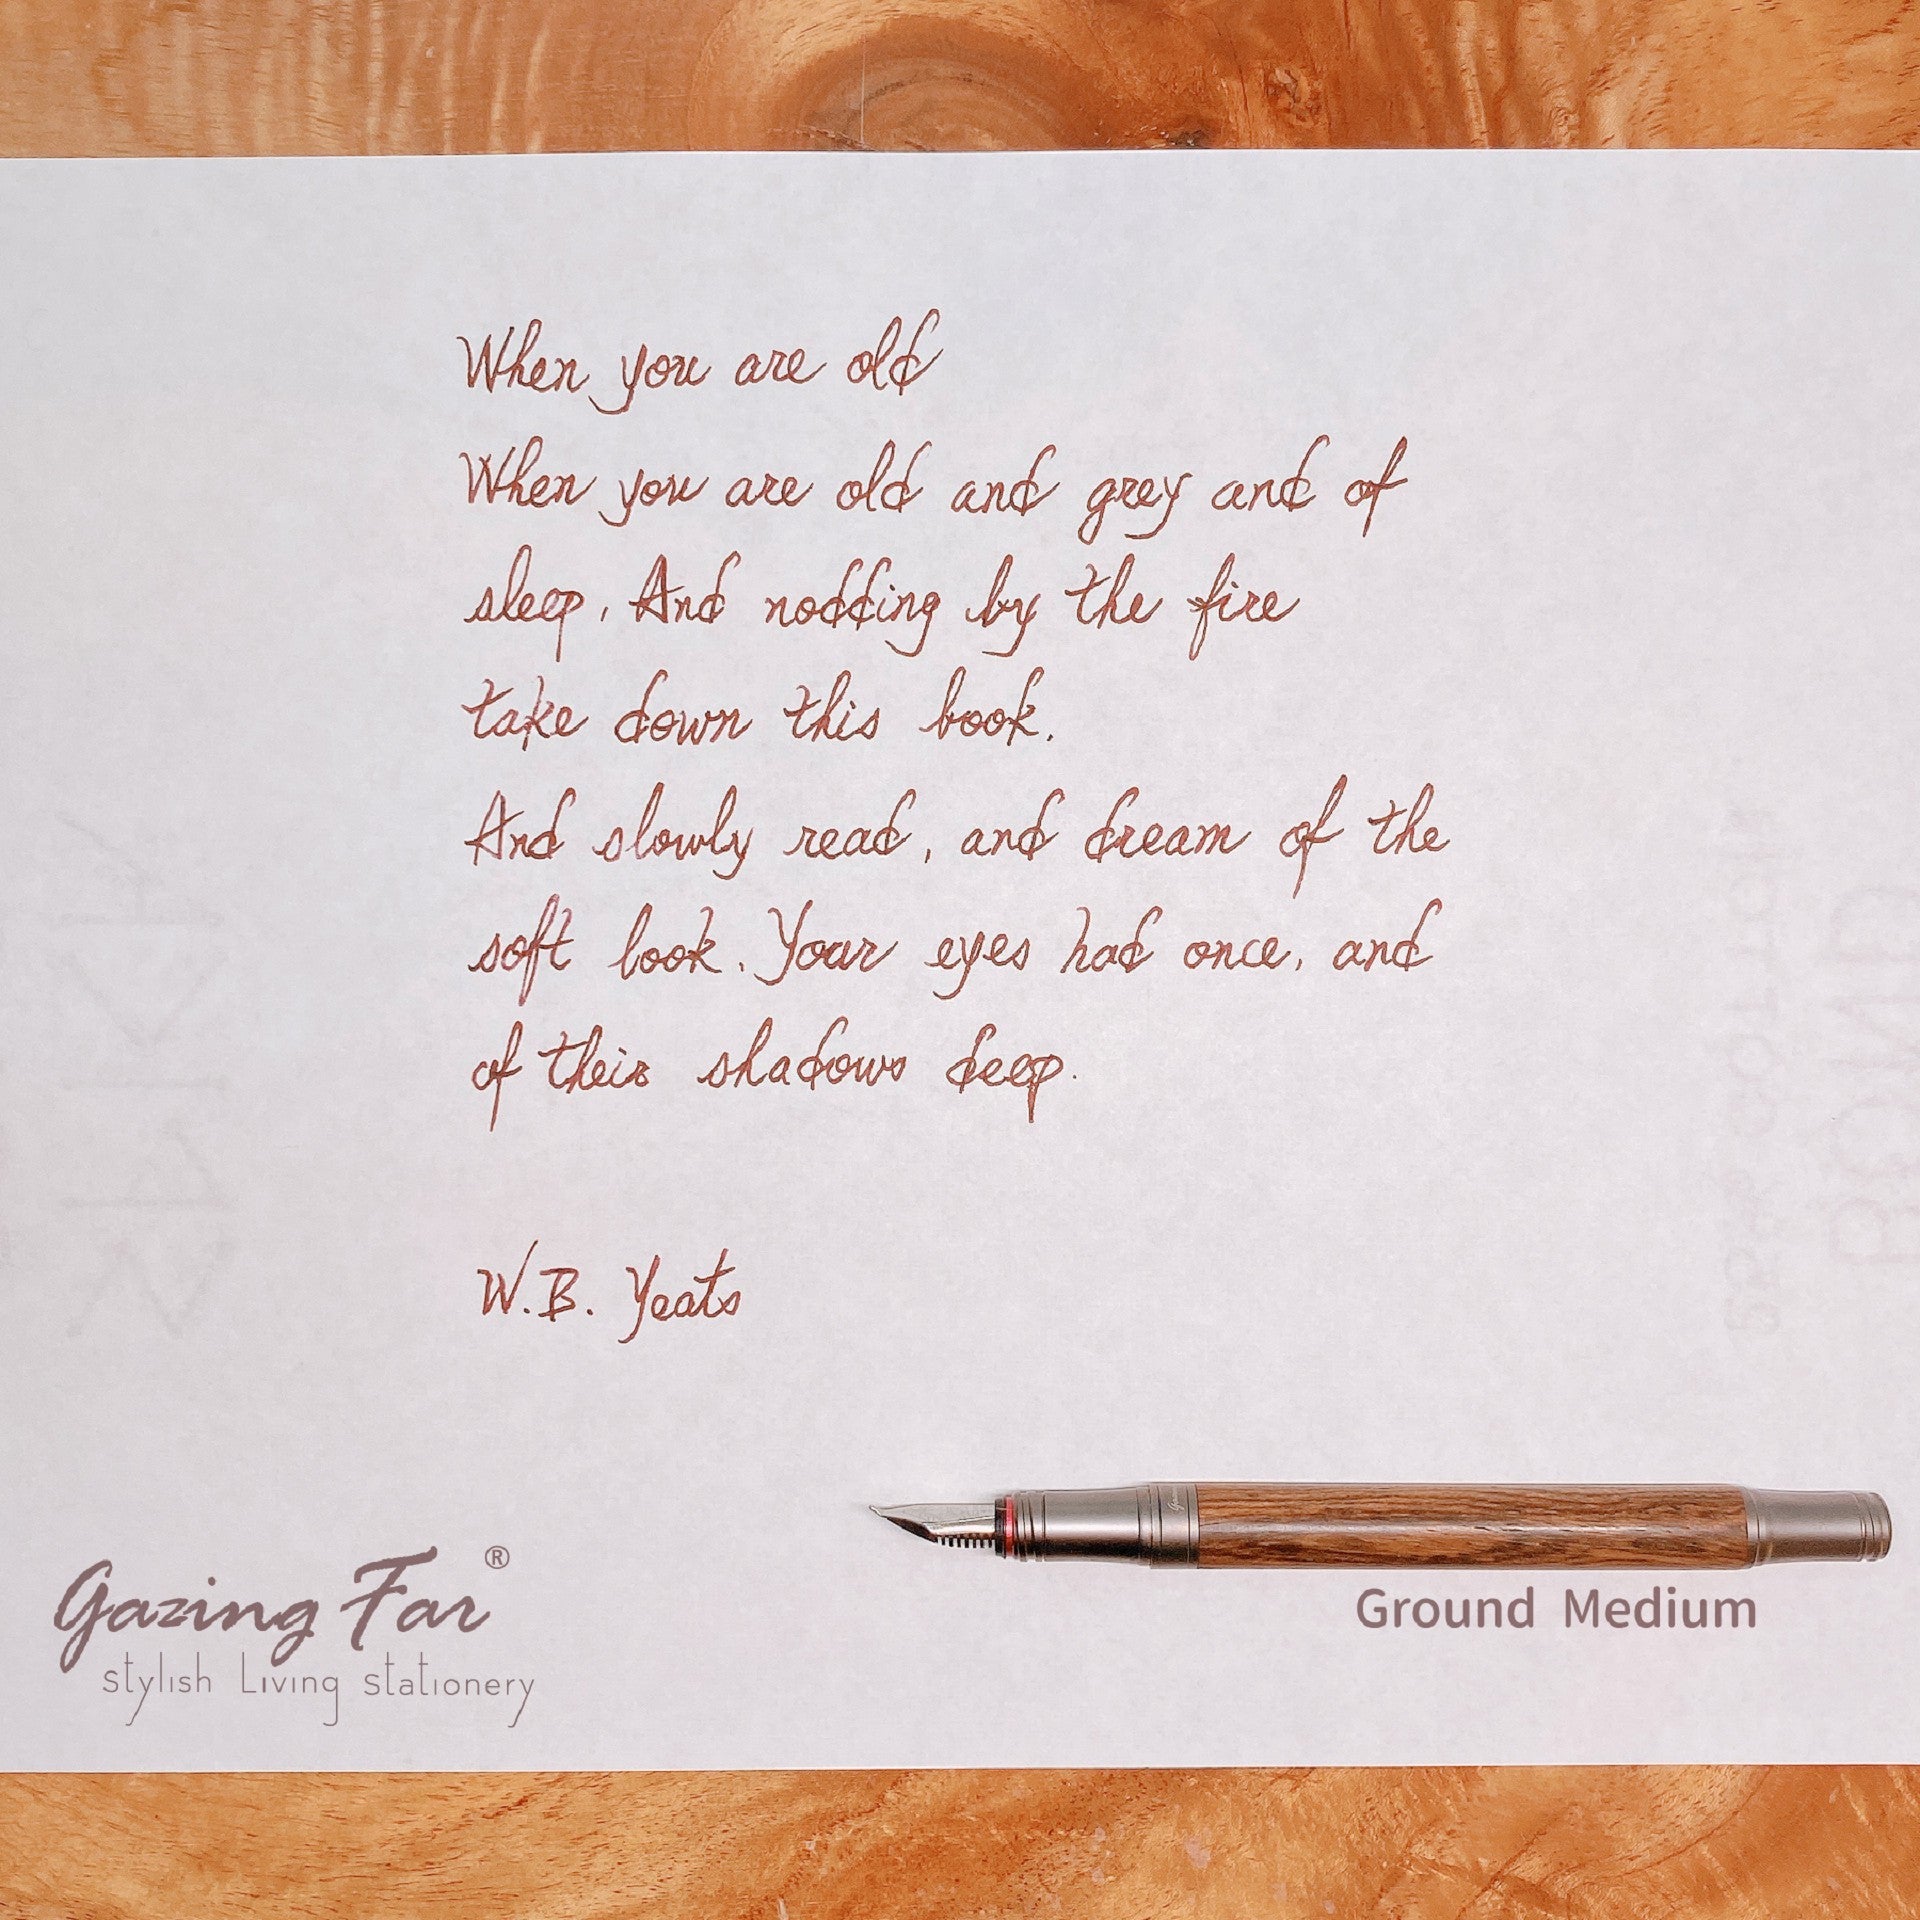 When you are old
When you are old and grey and of
sleep, And nodding by the fire
take down this book.
And slowly read, and dream of the
soft look. Your eyes had once, and
of their shadows deep.
W.B. Yeats
Gazing Far®
stylish Living stationery
Ground Medium